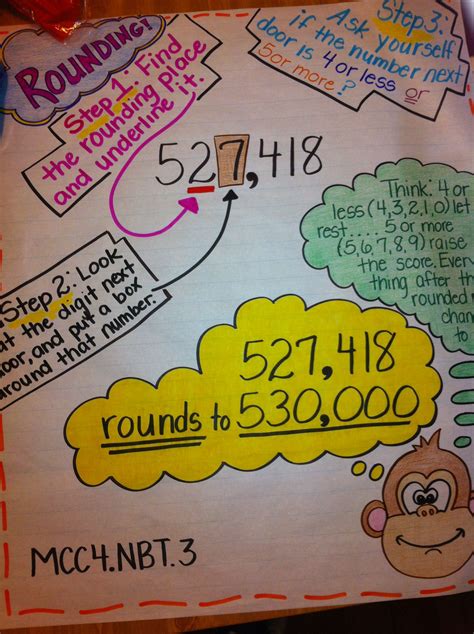 ROUNDING!
Step 1: Find
the rounding place
and underline it.
Step 3:
Ask yourself
if the number next
door is 4 or less or
5 or more?
527,418
Step 2: Look
at the digit next
door, and put a box
around that number.
Think: 4 or
less (4,3,2,1,0) let
rest..... 5 or more
(5,6,7,8,9) raise
the score. Every
thing after th
rounded
chan
to
527,418
rounds to 530,000
MCC4.NBT.3